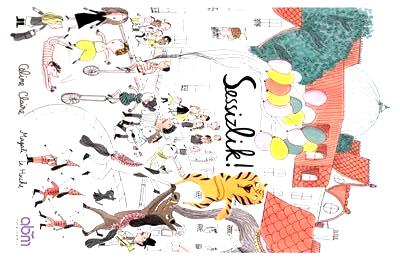 Sessizlik!
Céline Claire Magali Le Huche
abm